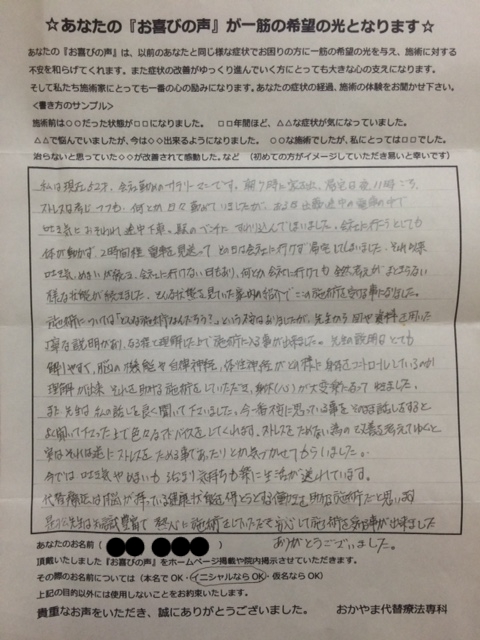 ☆あなたの『お喜びの声』が一筋の希望の光となります☆
あなたの『お喜びの声』は、以前のあなたと同じ様な症状でお困りの方に一筋の希望の光を与え、施術に対する
不安を和らげてくれます。また症状の改善がゆっくり進んでいく方にとっても大きな心の支えになります。
そして私たち施術家にとっても一番の心の励みになります。あなたの症状の経過、施術の体験をお聞かせ下さい。
<書き方のサンプル>
施術前は○○だった状態が□□になりました。 □□年間ほど、△△な症状が気になっていました。
△△で悩んでいましたが、今は◇◇出来るようになりました。 ○○な施術でしたが、私にとっては□□でした。
治らないと思っていた◇◇が改善されて感動した。など (初めての方がイメージしていただき易いと幸いです)
私は現在52才、会社勤めのサラリーマンです。朝7時に家を出、帰宅は夜11時ごろ、
ストレスは感じつつも、何とか日々勤めていましたが、ある日出勤途中の電車の中で
吐き気におそわれ途中下車。駅のベンチにすわり込んでしまいました。会社に行こうとしても
体が動かず、2時間程電車を見送ってその日は会社に行けず帰宅してしまいました。それ以来
吐き気、めまいが続き、会社に行けない日もあり、何とか会社に行けても全然考えがまとまらない
様な状態が続きました。そんな状態を見ていた の紹介でこの施術を受る事になりました。
施術については「どんな施術なんだろう?」という不安はありましたが、先生から図や資料を用いた
丁寧な説明があり、ある程度理解した上で施術に入る事が出来ました。先生の説明はとても
解りやすく、脳の機能や自律神経、体性神経がどの様に身体をコントロールしているのか
理解が出来、それを助ける施術をしていただき、身体(心)が大変楽になって来ました。
また先生は私の話しを良く聞いて下さいました。今一番大切に思っている事をそのまま話しをすると
よく聞いて下さった上で色々なアドバイスをしてくれます。ストレスをためない為の改善を考えてゆくと
実はそれは逆にストレスをためる事であったりとか気づかせてもらいました。
今では吐き気やめまいも治まり気持ちも楽に生活が送れています。
代替療法は脳が持っている健康状態を得ようとする働きを助ける施術だと思います
先生はお話も豊富で 熱心に施術をしていただき安心して施術を受る事が出来ました
ありがとうございました。
あなたのお名前 ( )
頂戴いたしました『お喜びの声』をホームページ掲載や院内掲示させていただきます。
その際のお名前については (本名でOK・イニシャルならOK・仮名ならOK)
上記の目的以外には使用しないことをお約束いたします。
貴重なお声をいただき、誠にありがとうございました。 おかやま代替療法専科